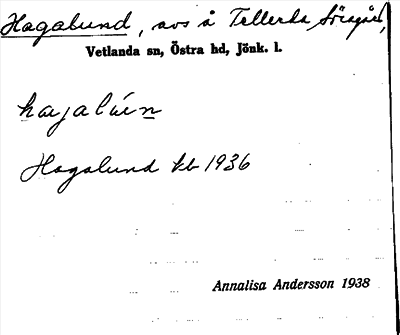 Hagalund, avs å Tellerda Sörgård,
Vetlanda sn, Östra hd, Jönk. l.
Hagalund kb 1936
Annalisa Andersson 1938